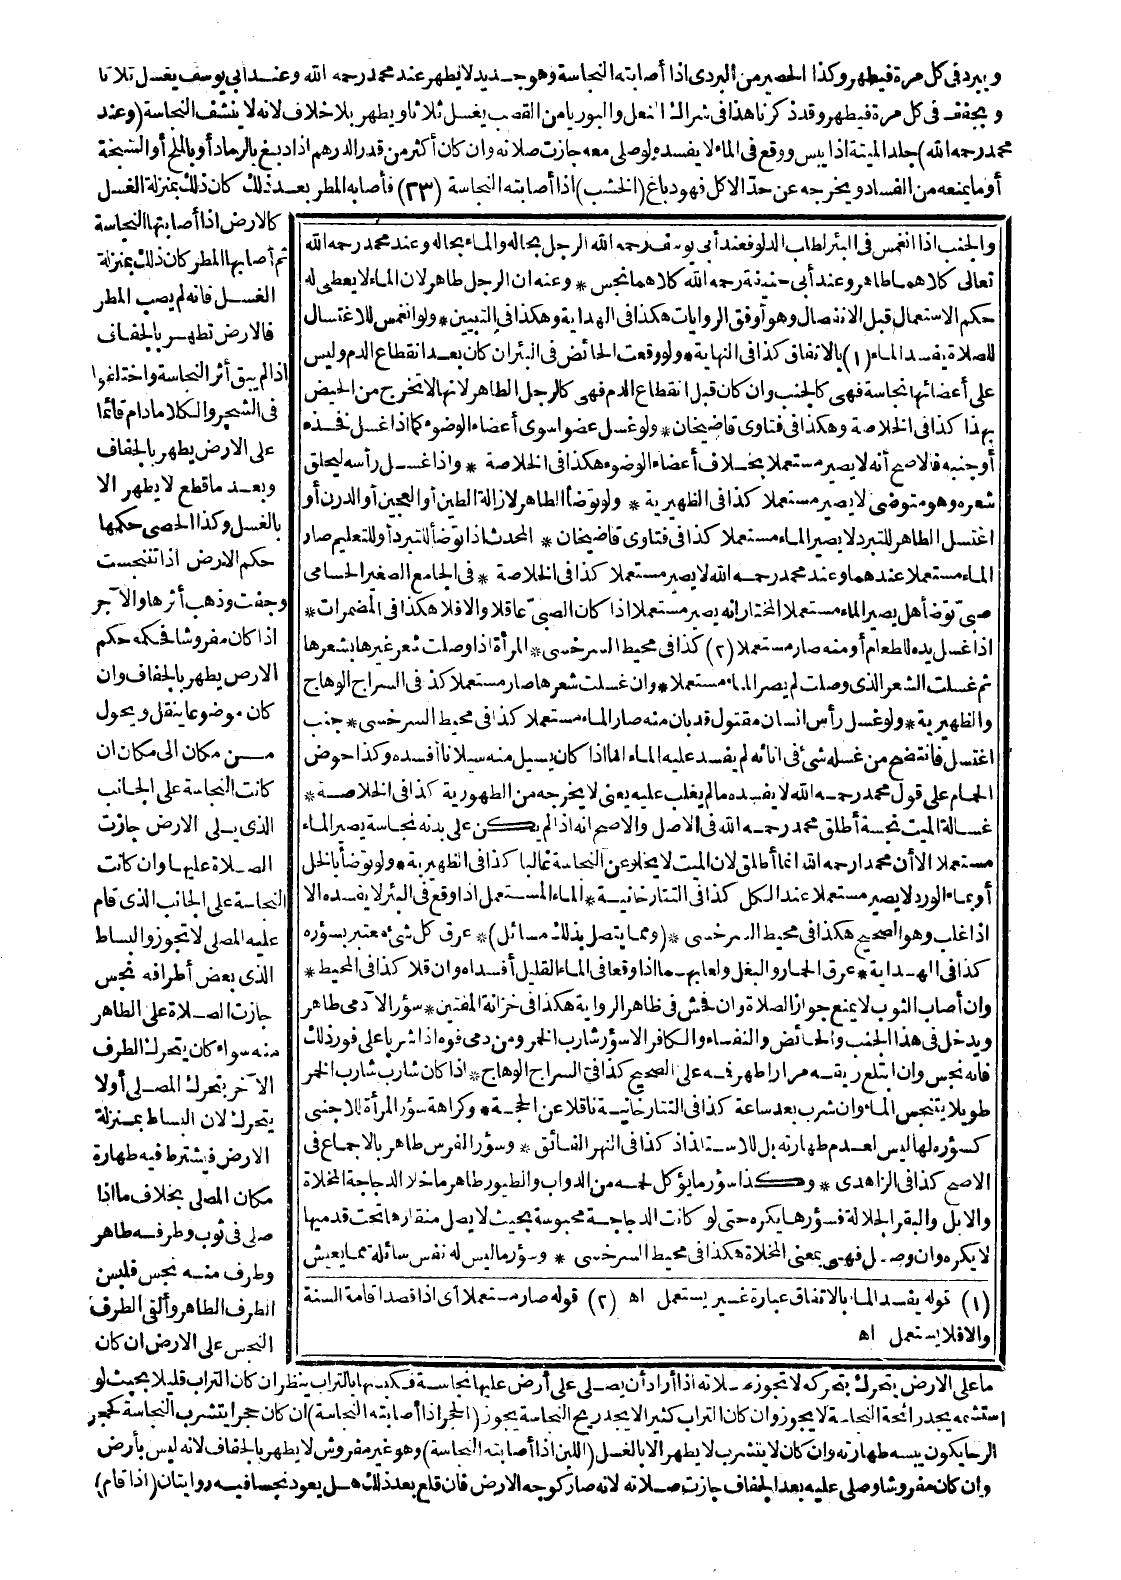 ويبرد في كل مرة فيطهر وكذا الحصير من البردى اذا أصابته النجاسة وهو جديد لا يطهر عند محمد رحمه الله وعند ابي يوسف يغسل ثلاثا
ويجفف في كل مرة فيطهر وقد ذكرنا هذا في شراك النعل والبوريا من القصب يغسل ثلاثا ويطهر بلا خلاف لانه لا ينشف النجاسة (وعند
محمد رحمه الله) جلد الميتة اذا يبس ووقع في الماء لا يفسده ولو صلى معه جازت صلاته وان كان أكثر من قدر الدرهم اذا دبغ بالرماد أو بالملح أو الشيخة
أو ما يمنعه من الفساد ويخرجه عن حد الاكل فهو دباغ (الخشب) اذا أصابته النجاسة (٢٣) فأصابه المطر بعد ذلك كان ذلك بمنزلة الغسل
كالارض اذا أصابتها النجاسة
ثم أصابها المطر كان ذلك بمنزلة
الغسل فانه لم يصب المطر
فالارض تطهر بالجفاف
اذا لم يبق أثر النجاسة واختلفوا
في الشجر والكلا مادام قائما
على الارض يطهر بالجفاف
وبعد ما قطع لا يطهر الا
بالغسل وكذا الحصى حكمها
حكم الارض اذا تنجست
وجفت وذهب أثرها والآجر
اذا كان مفروشا فحكمه حكم
الارض يطهر بالجفاف وان
كان موضوعا ينقل ويحول
من مكان الى مكان ان
كانت النجاسة على الجانب
الذي يلى الارض جازت
الصلاة عليها وان كانت
النجاسة على الجانب الذى قام
عليه المصلى لا تجوز والبساط
الذى بعض أطرافه نجس
جازت الصلاة على الطاهر
منه سواء كان يتحرك الطرف
الآخر بتحرك المصلى أو لا
يتحرك لان البساط بمنزلة
الارض فيشترط فيه طهارة
مكان المصلى بخلاف ما اذا
صلى في ثوب وطرفه طاهر
وطرف منه نجس فلبس
الطرف الطاهر وألقى الطرف
النجس على الارض ان كان
والجنب اذا انغمس في البئر لطلب الدلو فعند أبي يوسف رحمه الله الرجل بحاله والماء بحاله وعند محمد رحمه الله
تعالى كلاهما طاهر وعند أبي حنيفة رحمه الله كلاهما نجس * وعنه ان الرجل طاهر لان الماء لا يعطى له
حكم الاستعمال قبل الانفصال وهو أوفق الروايات هكذا في الهداية وهكذا في التبيين * ولو انغمس للاغتسال
للصلاة يفسد الماء (١) بالاتفاق كذا في النهاية * ولو وقعت الحائض في البئر ان كان بعد انقطاع الدم وليس
على أعضائها نجاسة فهى كالجنب وان كان قبل انقطاع الدم فهى كالرجل الطاهر لانها لا تخرج من الحيض
بهذا كذا في الخلاصة وهكذا في فتاوى قاضيخان * ولو غسل عضوا سوى أعضاء الوضوء كما اذا غسل فخذه
أو جنبه فالاصح أنه لا يصير مستعملا بخلاف أعضاء الوضوء هكذا في الخلاصة * واذا غسل رأسه ليحلق
شعره وهو متوضئ لا يصير مستعملا كذا في الظهيرية * ولو توضأ الطاهر لازالة الطين أو العجين أو الدرن أو
اغتسل الطاهر للتبرد لا يصير الماء مستعملا كذا في فتاوى قاضيخان * المحدث اذا توضأ للتبرد أو للتعليم صار
الماء مستعملا عندهما وعند محمد رحمه الله لا يصير مستعملا كذا في الخلاصة * في الجامع الصغير الحسامى
صبى توضأ هل يصير الماء مستعملا المختار انه يصير مستعملا اذا كان الصبى عاقلا والا فلا هكذا في المضمرات *
اذا غسل يده للطعام أو منه صار مستعملا (٢) كذا في محيط السرخسى * المرأة اذا وصلت شعر غيرها بشعرها
ثم غسلت الشعر الذى وصلت لم يصر الماء مستعملا * وان غسلت شعرها صار مستعملا كذ في السراج الوهاج
والظهيرية * ولو غسل رأس انسان مقتول قد بان منه صار الماء مستعملا كذا في محيط السرخسى * جنب
اغتسل فانتضح من غسله شئ في انائه لم يفسد عليه الماء اما اذا كان يسيل منه سيلانا أفسده وكذا حوض
الحمام على قول محمد رحمه الله لا يفسده ما لم يغلب عليه يعنى لا يخرجه من الطهورية كذا في الخلاصة *
غسالة الميت نجسة أطلق محمد رحمه الله في الاصل والاصح انه اذا لم يكن على بدنه نجاسة يصير الماء
مستعملا الا أن محمدا رحمه الله انما أطلق لان الميت لا يخلو عن النجاسة غالبا كذا في الظهيرية * ولو توضأ بالخل
أو بماء الورد لا يصير مستعملا عند الكل كذا في التتارخانية * الماء المستعمل اذا وقع في البئر لا يفسده الا
اذا غلب وهو الصحيح هكذا في محيط السرخسى * (ومما يتصل بذلك مسائل) * عرق كل شئ معتبر بسؤره
كذا في الهداية * عرق الحمار والبغل ولعابهما اذا وقعا في الماء القليل أفسداه وان قلا كذا في المحيط *
وان أصاب الثوب لا يمنع جواز الصلاة وان فحش في ظاهر الرواية هكذا في خزانة المفتين * سؤر الآدمى طاهر
ويدخل في هذا الجنب والحائض والنفساء والكافر الا سؤر شارب الخمر ومن دمى فوه اذا شربا على فور ذلك
فانه نجس وان ابتلع ريقه مرارا طهر فمه على الصحيح كذا في السراج الوهاج * اذا كان شارب شارب الخمر
طويلا ينجس الماء وان شرب بعد ساعة كذا في التتارخانية ناقلا عن الحجة * وكراهة سؤر المرأة للاجنبى
كسؤره لها ليس لعدم طهارته بل للاستلذاذ كذا في النهر الفائق * وسؤر الفرس طاهر بالاجماع في
الاصح كذا في الزاهدى * وكذا سؤر ما يؤكل لحمه من الدواب والطيور طاهر ما خلا الدجاجة المخلاة
والابل والبقر الجلالة فسؤرها يكره حتى لو كانت الدجاجة محبوسة بحيث لا يصل منقارها تحت قدميها
لا يكره وان وصل فهى بمعنى المخلاة هكذا في محيط السرخسى * وسؤر ما ليس له نفس سائلة مما يعيش
(١) قوله يفسد الماء بالاتفاق عبارة غسير يستعمل اه (٢) قوله صار مستعملا أى اذا قصد اقامة السنة
والا فلا يستعمل اه
ما على الارض يتحرك بتحركه لا تجوز صلاته اذا أراد أن يصلى على أرض عليها نجاسة فكبسها بالتراب ينظر ان كان التراب قليلا بحيث لو
استشمه يجد رائحة النجاسة لا يجوز وان كان التراب كثيرا لا يجد ريح النجاسة يجوز (الحجر اذا أصابته النجاسة) ان كان حجرا يتشرب النجاسة كحجر
الرحا يكون يبسه طهارته وان كان لا يتشرب لا يطهر الا بالغسل (اللبن اذا أصابته النجاسة) وهو غير مفروش لا يطهر بالجفاف لانه ليس بأرض
وان كان مفروشا وصلى عليه بعد الجفاف جازت صلاته لانه صار كوجه الارض فان قلع بعد ذلك هل يعود نجسا فيه روايتان (اذا قام)